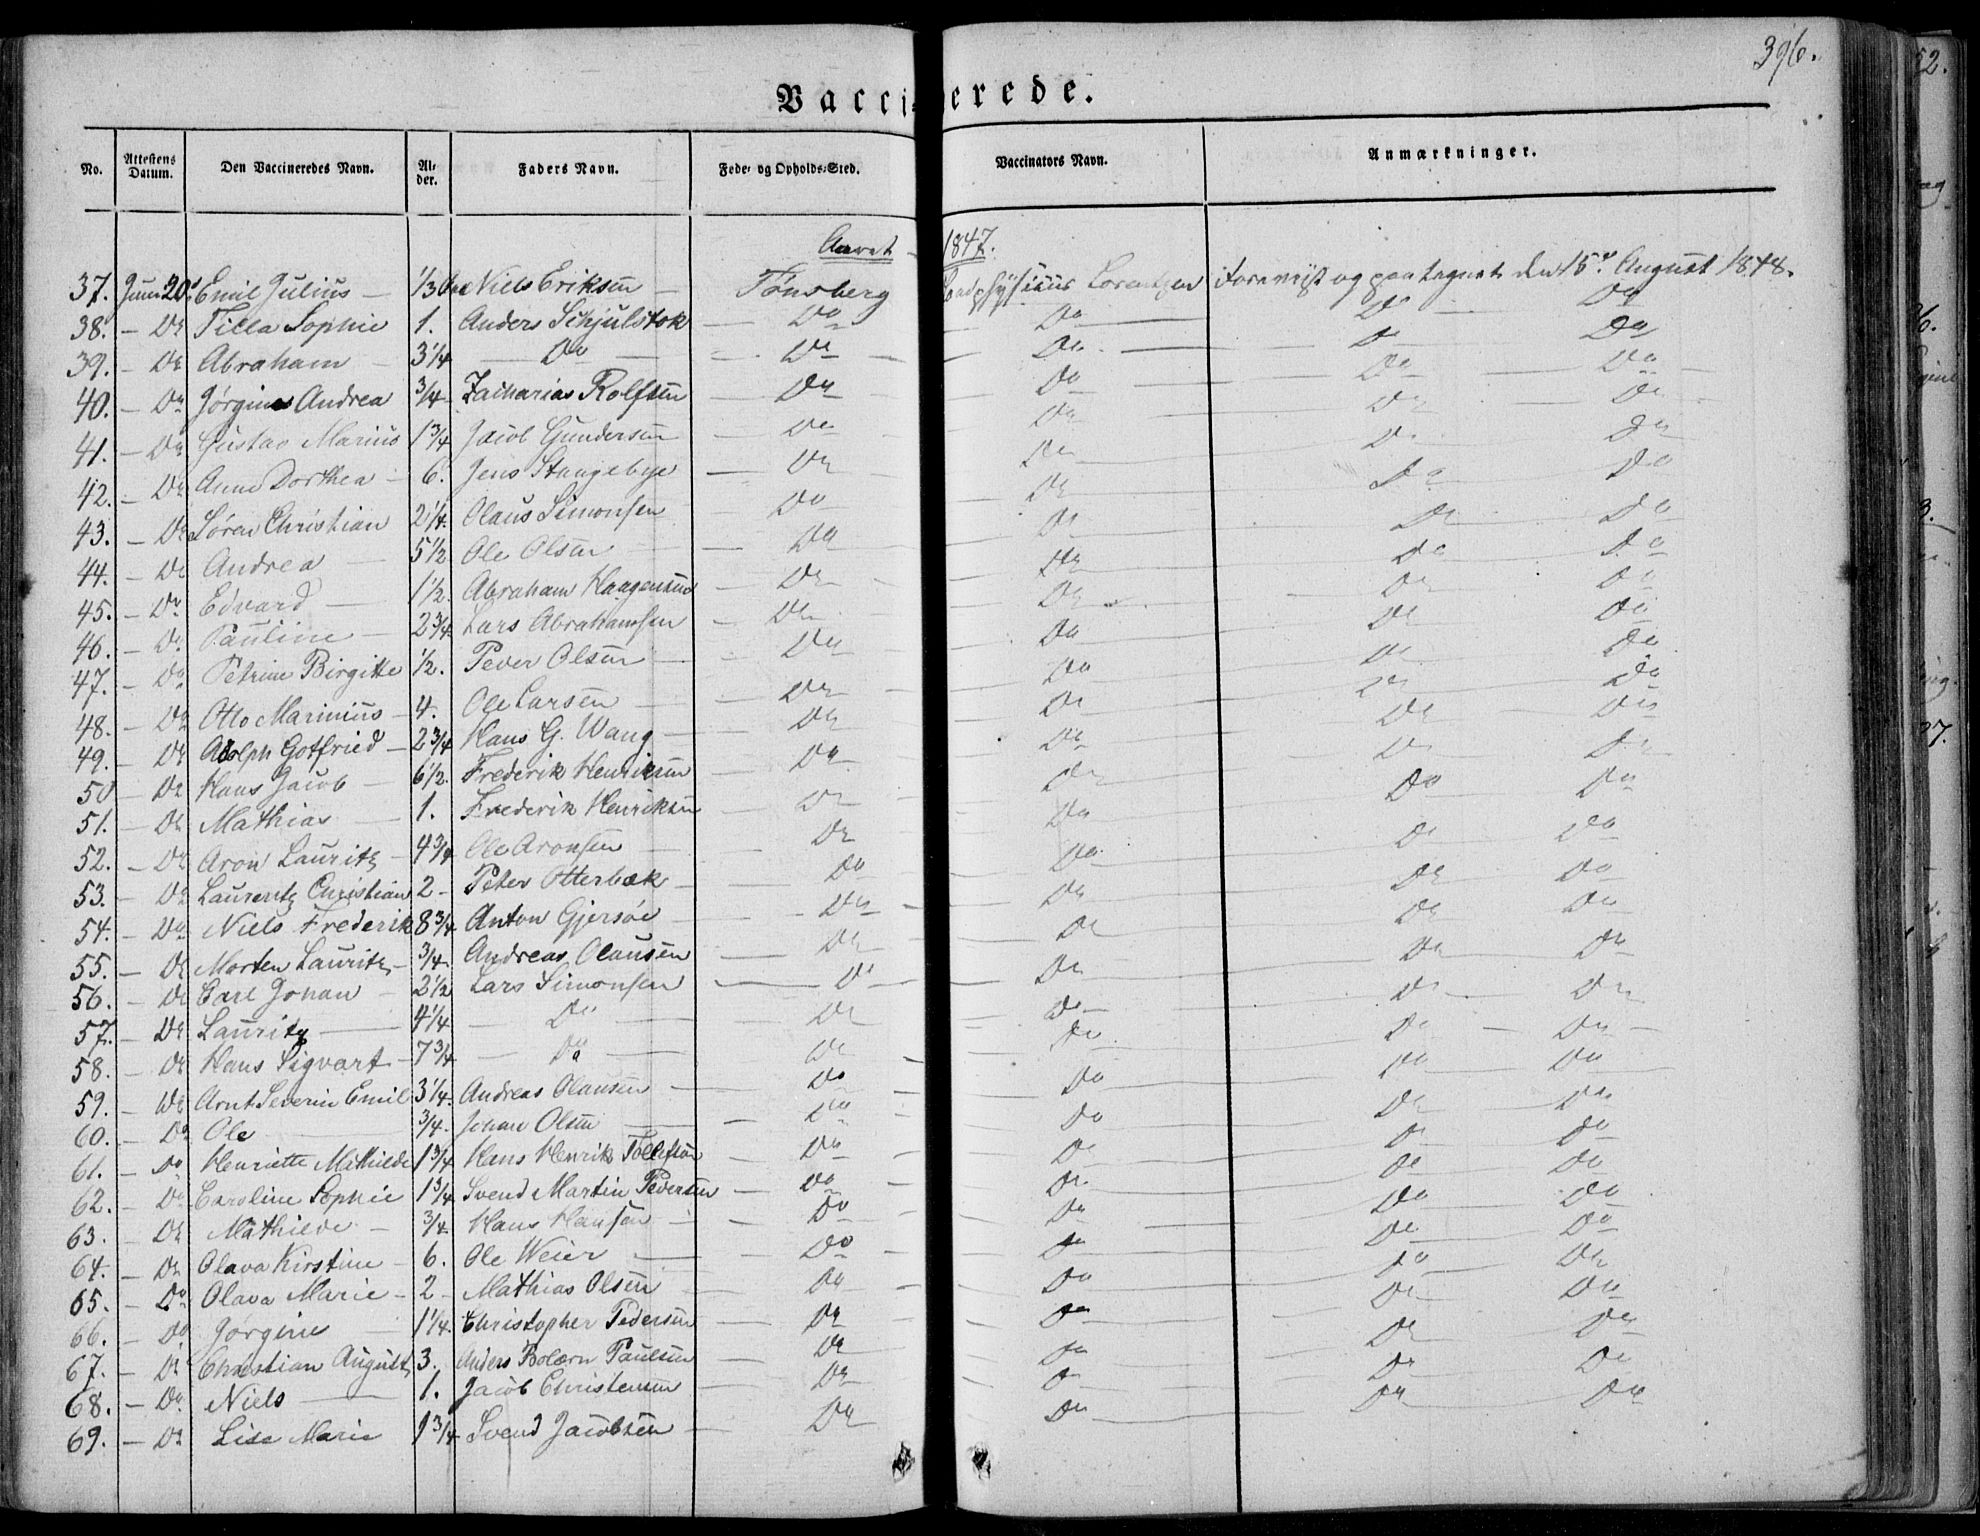 396.
Vaccinerede.
No. Attestens Datum. Den Vaccineredes Navn. Alder. Faders Navn. Føde- og Opholds-Sted. Vaccinators Navn. Anmærkninger.
Aaret 1847.
37. Juni 20 Emil Julius 1/3 Niels Eriksen Tønsberg Landphysicus Lorentzen Foreviist og paategnet den 15de August 1848.
38. Do Tilla Sophie 1. Anders Schjulstok Do Do Do Do
39. Do Abraham 3 1/4 Do Do Do Do Do
40. Do Jørgine Andrea 3/4 Zacharias Rolfsen Do Do Do Do
41. Do Gustav Marius 1 3/4 Jacob Gundersen Do Do Do Do
42. Do Anne Dorthea 6. Jens Stangebye Do Do Do Do
43. Do Søren Christian 2 1/4. Olaus Simonsen Do Do Do Do
44. Do Andrea 5 1/2 Ole Olsen Do Do Do Do
45. Do Edvard 1 1/2. Abraham Haagensen Do Do Do Do
46. Do Pauline 2 3/4 Lars Abrahamsen Do Do Do Do
47. Do Petrine Birgitte 1/2. Peder Olsen Do Do Do Do
48. Do Otto Marinius 4. Ole Larsen Do Do Do Do
49. Do Adolph Gotfried 2 3/4 Hans G. Wang Do Do Do Do
50 Do Hans Jacob 6 1/2. Frederik Henriksen Do Do Do Do
51. Do Mathias 1. Frederik Henriksen Do Do Do Do
52. Do Aron Lauritz 4 3/4 Ole Aronsen Do Do Do Do
53. Do Laurentz Christian 2 Peter Otterbæk Do Do Do Do
54. Do Niels Frederik 8 3/4 Anton Gjersøe Do Do Do Do
55. Do Morten Lauritz 3/4. Andreas Olausen Do Do Do Do
56. Do Carl Johan 2 1/2 Lars Simonsen Do Do Do Do
57. Do Lauritz 4 1/4 Do Do Do Do Do
58. Do Hans Sigvart 7 3/4 Do Do Do Do Do
59. Do Arnt Severin Emil 3 1/4. Andreas Olausen Do Do Do Do
60. Do Ole 3/4. Johan Olsen Do Do Do Do
61. Do Henriette Mathilde 1 3/4 Hans Henrik Tollefsen Do Do Do Do
62. Do Caroline Sophie 1 3/4 Svend Martin Pedersen Do Do Do Do
63. Do Mathilde 3/4 Hans Hansen Do Do Do Do
64. Do Olava Kirstine 6. Ole Weier Do Do Do Do
65. Do Olava Marie 2 Mathias Olsen Do Do Do Do
66. Do Jørgine 1 1/4. Christopher Pedersen Do Do Do Do
67. Do Christian August 3. Anders Bolærn Paulsen Do Do Do Do
68. Do Niels 1. Jacob Christensen Do Do Do Do
69. Do Lise Marie 1 3/4 Svend Jacobsen Do Do Do Do